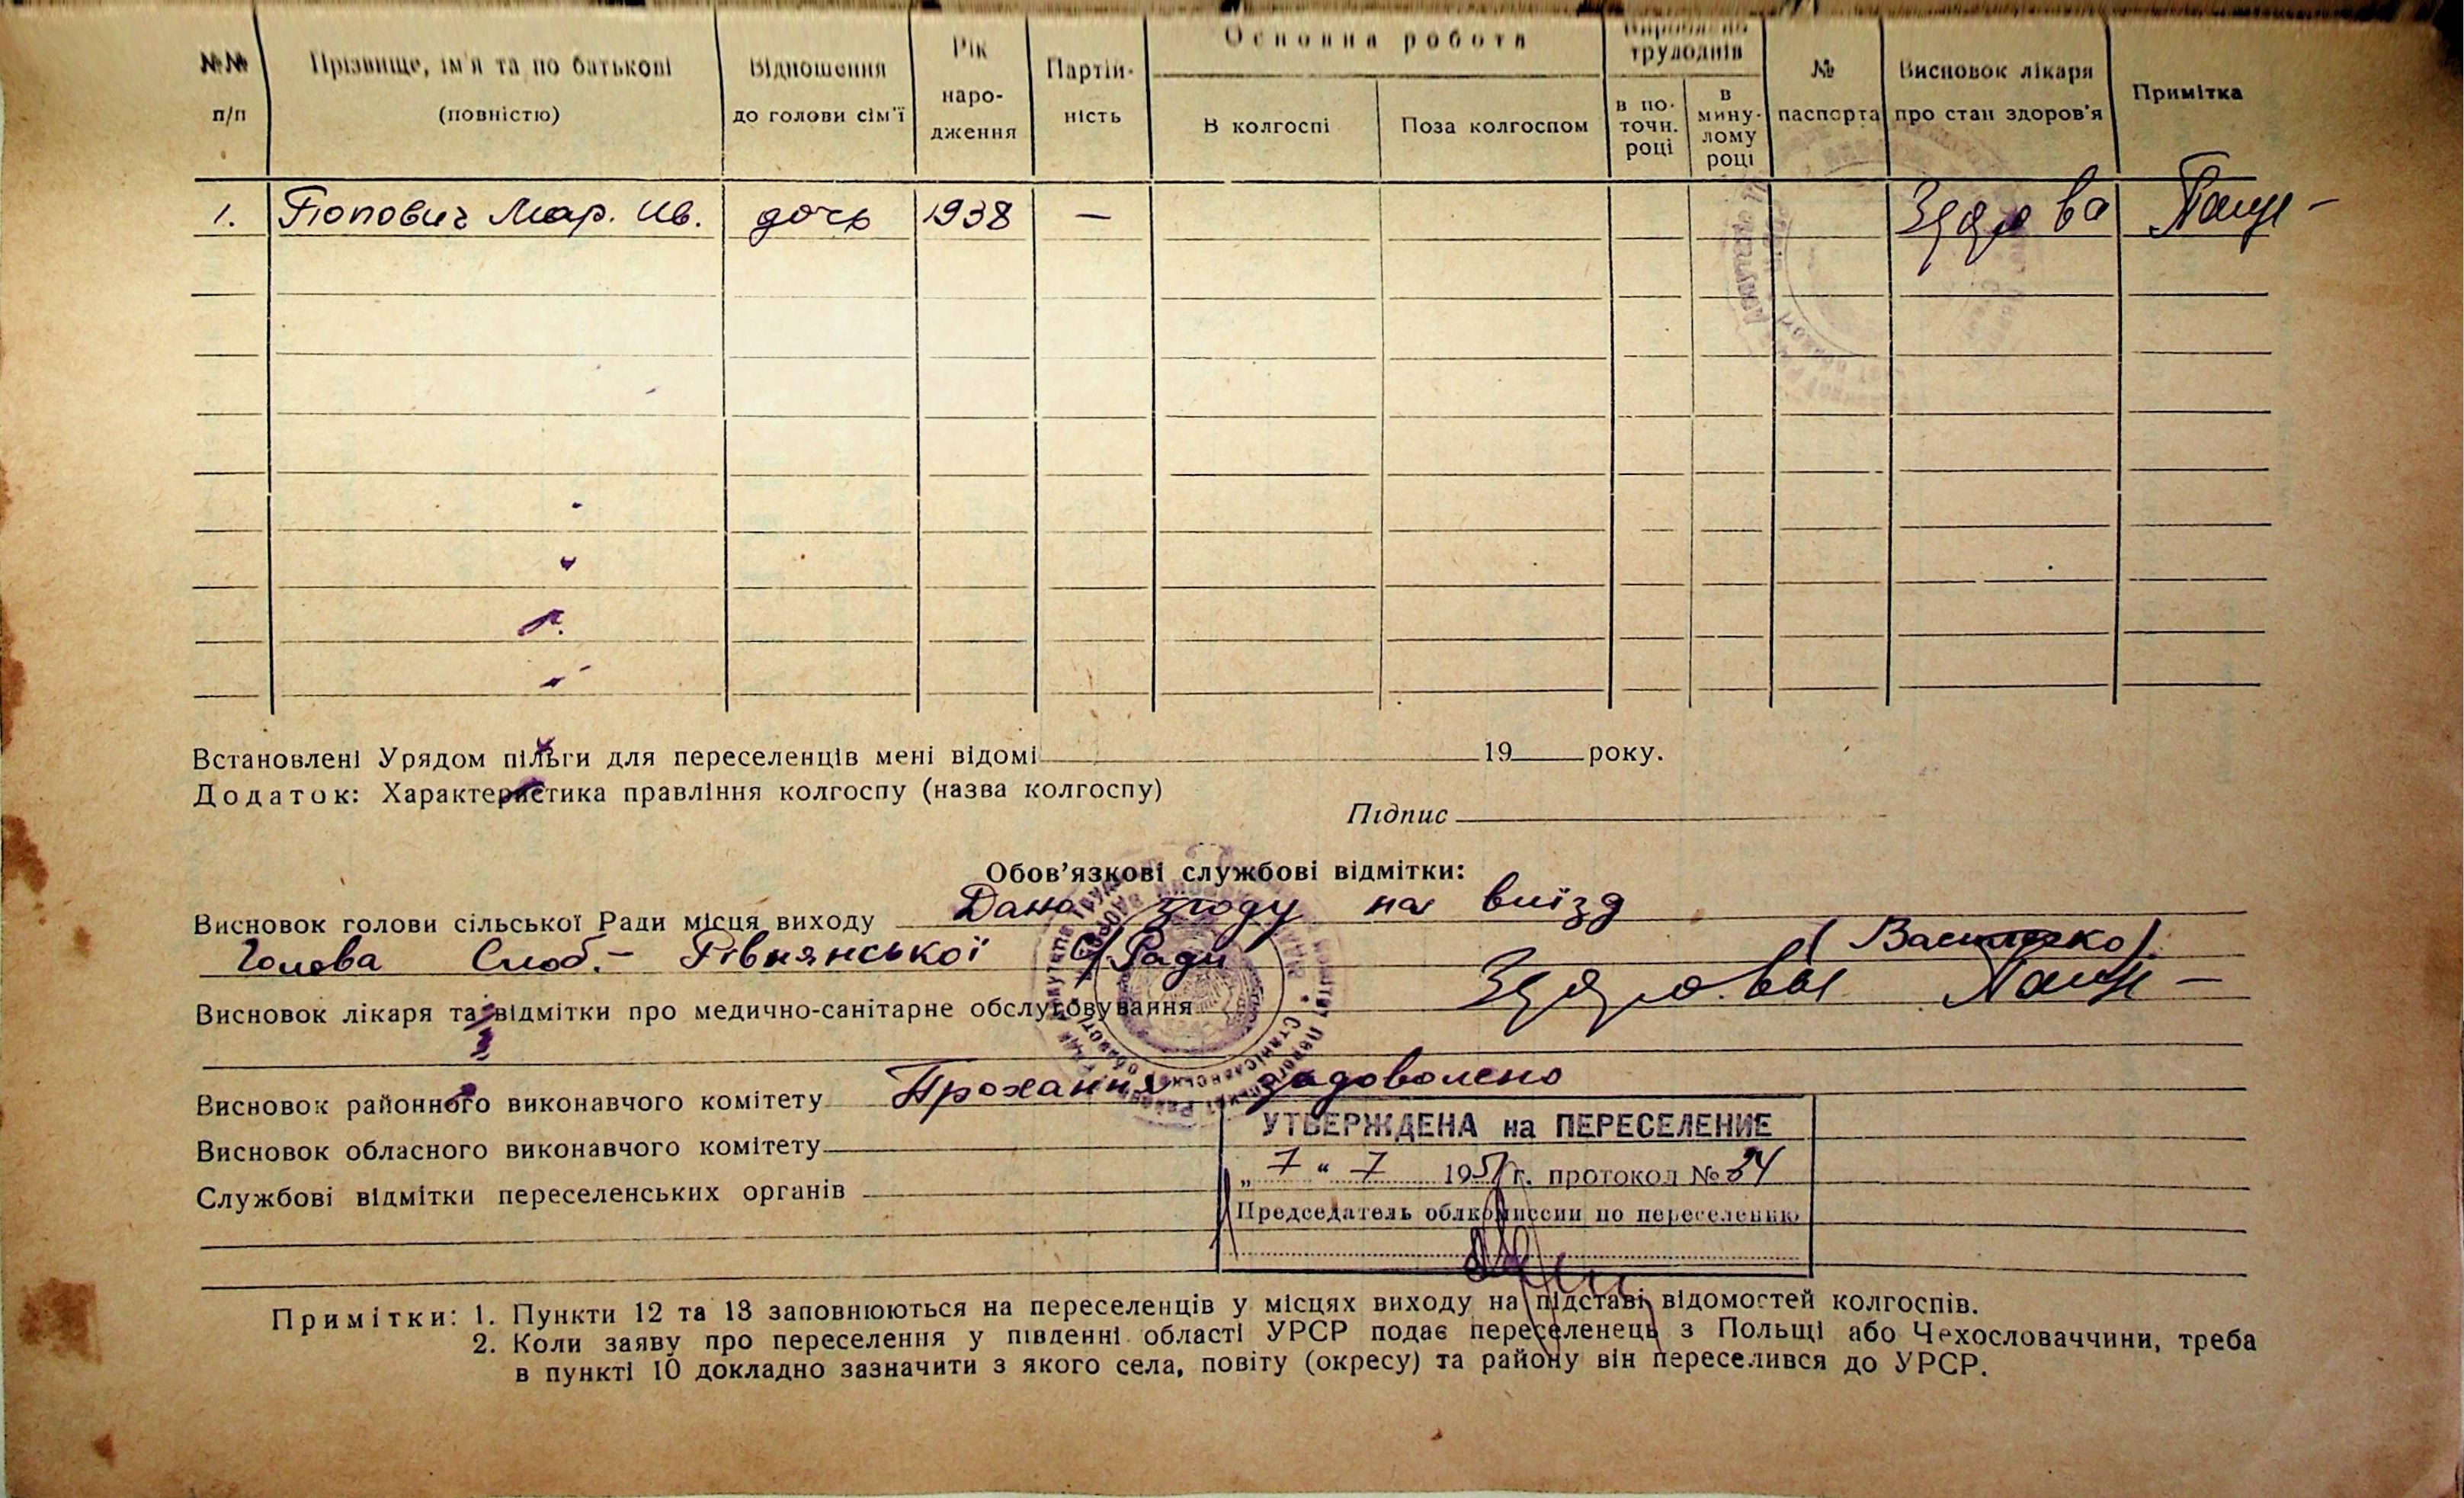 №№ п/п
Прізвище, ім'я та по батькові (повністю)
Відношення до голови сім'ї
Рік народження
Партійність
Основна робота
В колгоспі
Поза колгоспом
трудоднів
в поточн. році
в минулому році
№ паспорта
Висновок лікаря про стан здоров'я
Примітка
1. Попович Мар. Ив. дочь 1938 — Здорова
Встановлені Урядом пільги для переселенців мені відомі 19 року.
Додаток: Характеристика правління колгоспу (назва колгоспу)
Підпис
Обов'язкові службові відмітки:
Висновок голови сільської Ради місця виходу Дано згоду на виїзд
Голова Слоб.-Рівнянської с/Ради
Висновок лікаря та відмітки про медично-санітарне обслуговування Здоровы
Висновок районного виконавчого комітету Прохання задоволено
Висновок обласного виконавчого комітету
Службові відмітки переселенських органів
УТВЕРЖДЕНА на ПЕРЕСЕЛЕНИЕ
„7“ 7 1951 г. протокол № 24
Председатель облкомиссии по переселению
Примітки: 1. Пункти 12 та 13 заповнюються на переселенців у місцях виходу на підставі відомостей колгоспів.
2. Коли заяву про переселення у південні області УРСР подає переселенець з Польщі або Чехословаччини, треба
в пункті 10 докладно зазначити з якого села, повіту (окресу) та району він переселився до УРСР.